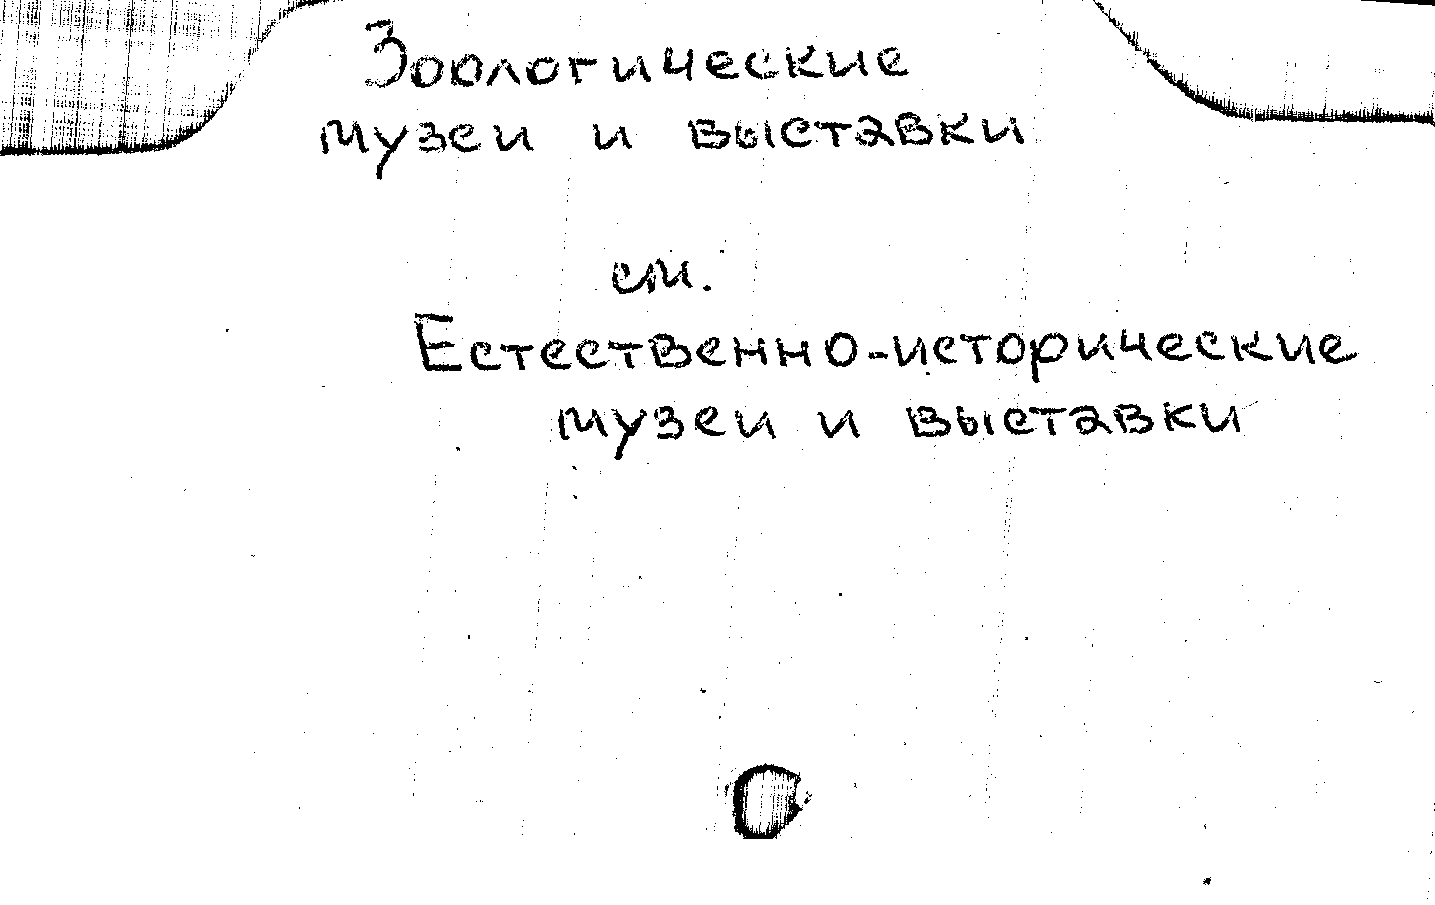 Зоологические
музеи и выставки
см.
Естественно-исторические
музеи и выставки